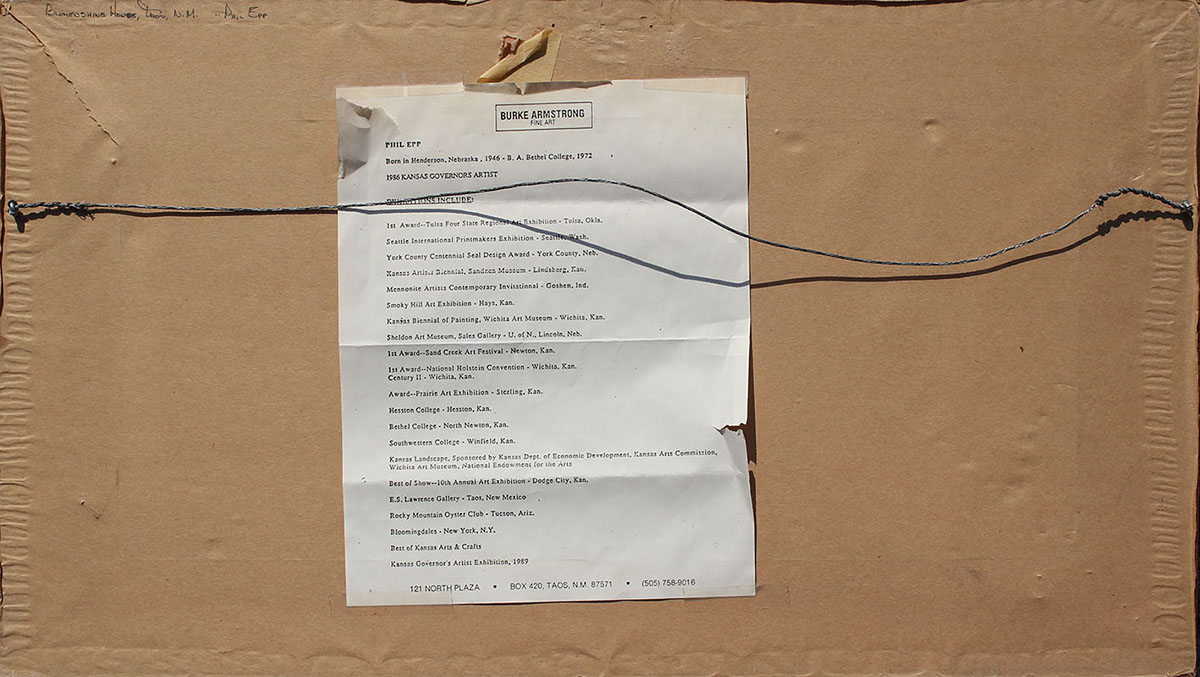 Blumenshine House, Taos, N.M. - Phil Epp
BURKE ARMSTRONG
FINE ART
PHIL EPP
Born in Henderson, Nebraska , 1946 - B. A. Bethel College, 1972
1986 KANSAS GOVERNORS ARTIST
EXHIBITIONS INCLUDE:
1st Award--Tulsa Four State Regional Art Exhibition - Tulsa, Okla.
Seattle International Printmakers Exhibition - Seattle, Wash.
York County Centennial Seal Design Award - York County, Neb.
Kansas Artists Biennial, Sandzen Museum - Lindsborg, Kan.
Mennonite Artists Contemporary Invitational - Goshen, Ind.
Smoky Hill Art Exhibition - Hays, Kan.
Kansas Biennial of Painting, Wichita Art Museum - Wichita, Kan.
Sheldon Art Museum, Sales Gallery - U. of N., Lincoln, Neb.
1st Award--Sand Creek Art Festival - Newton, Kan.
1st Award--National Holstein Convention - Wichita, Kan.
Century II - Wichita, Kan.
Award--Prairie Art Exhibition - Sterling, Kan.
Hesston College - Hesston, Kan.
Bethel College - North Newton, Kan.
Southwestern College - Winfield, Kan.
Kansas Landscape, Sponsored by Kansas Dept. of Economic Development, Kansas Arts Commission,
Wichita Art Museum, National Endowment for the Arts
Best of Show--10th Annual Art Exhibition - Dodge City, Kan.
E.S. Lawrence Gallery - Taos, New Mexico
Rocky Mountain Oyster Club - Tucson, Ariz.
Bloomingdales - New York, N.Y.
Best of Kansas Arts & Crafts
Kansas Governor's Artist Exhibition, 1989
121 NORTH PLAZA • BOX 420, TAOS, N.M. 87571 • (505) 758-9016